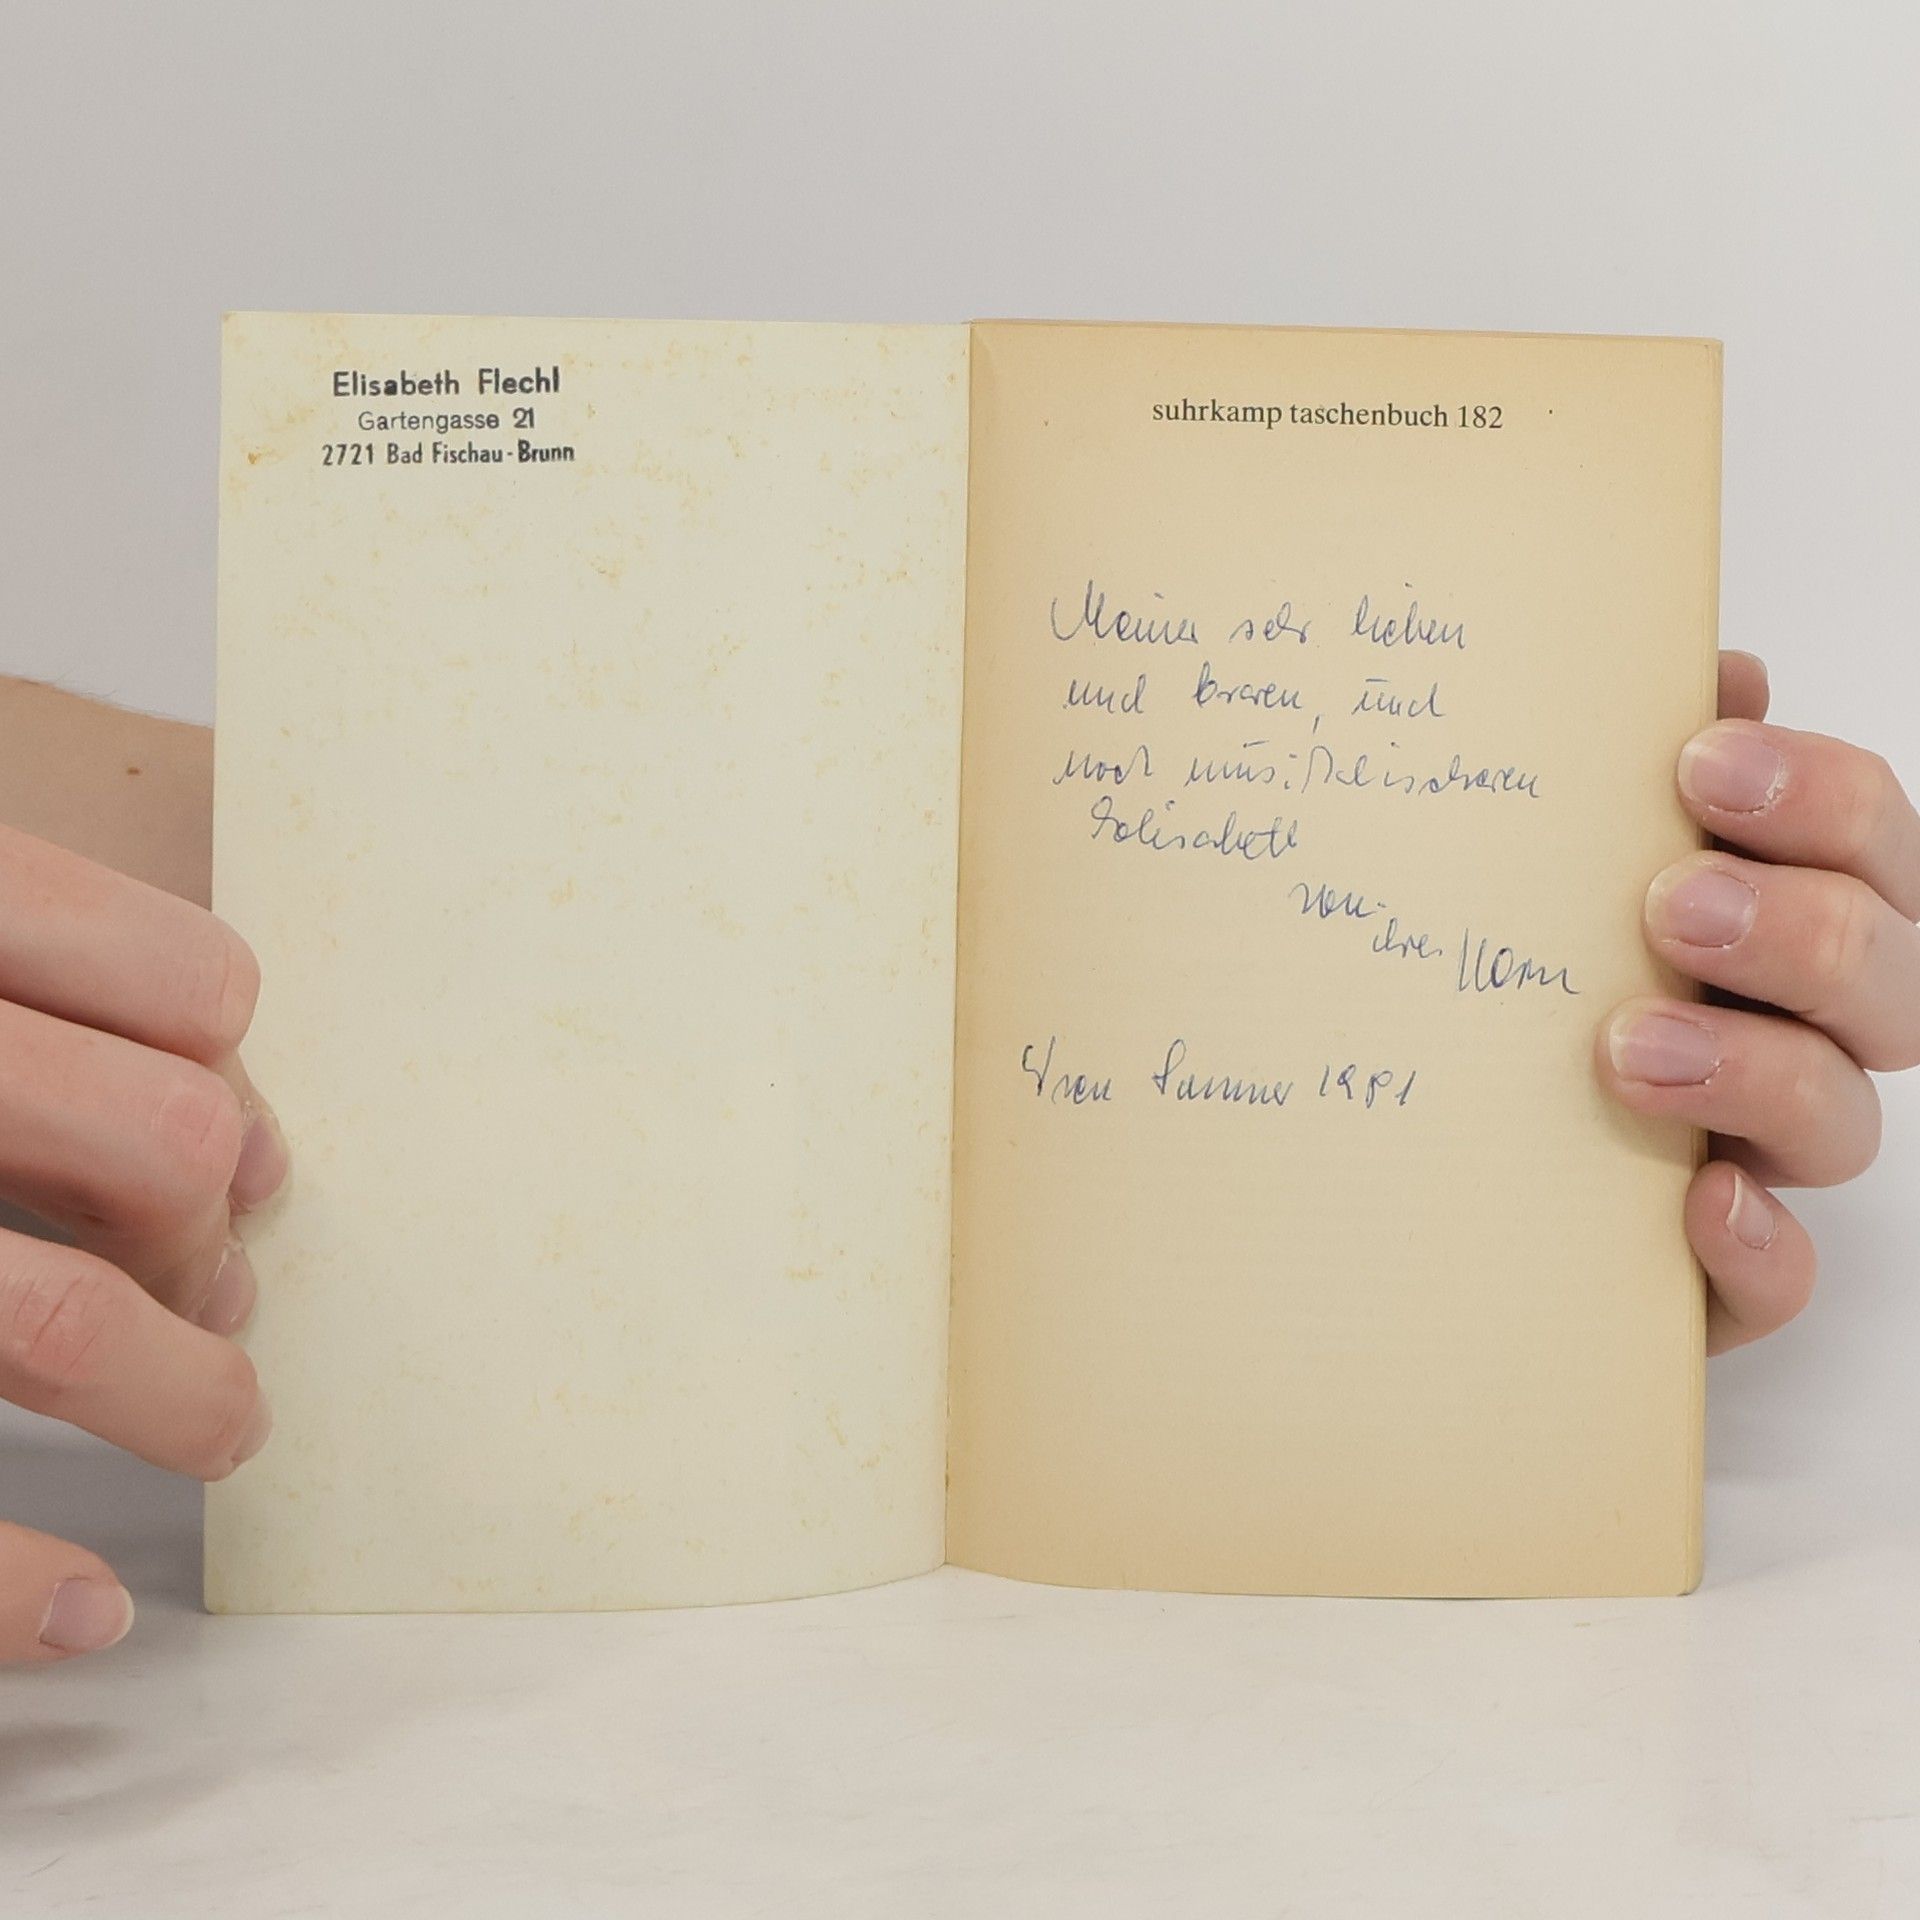 Elisabeth Flechl
Gartengasse 21
2721 Bad Fischau-Brunn
suhrkamp taschenbuch 182
Meiner sehr lieben
und braven, und
noch musikalischeren
Elisabeth
von
ihrer
Sommer 1981